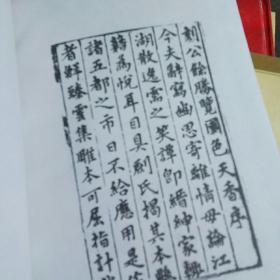 刻公餘勝覽國色天香序
今夫辭寫幽思寄離情毋論江
湖散逸需之笑譚即縉紳家輒
藉為悅耳目具劍氏揭其本懸
諸五都之市日不給應用是作
者鮮臻雲集雕本可屈指計哉